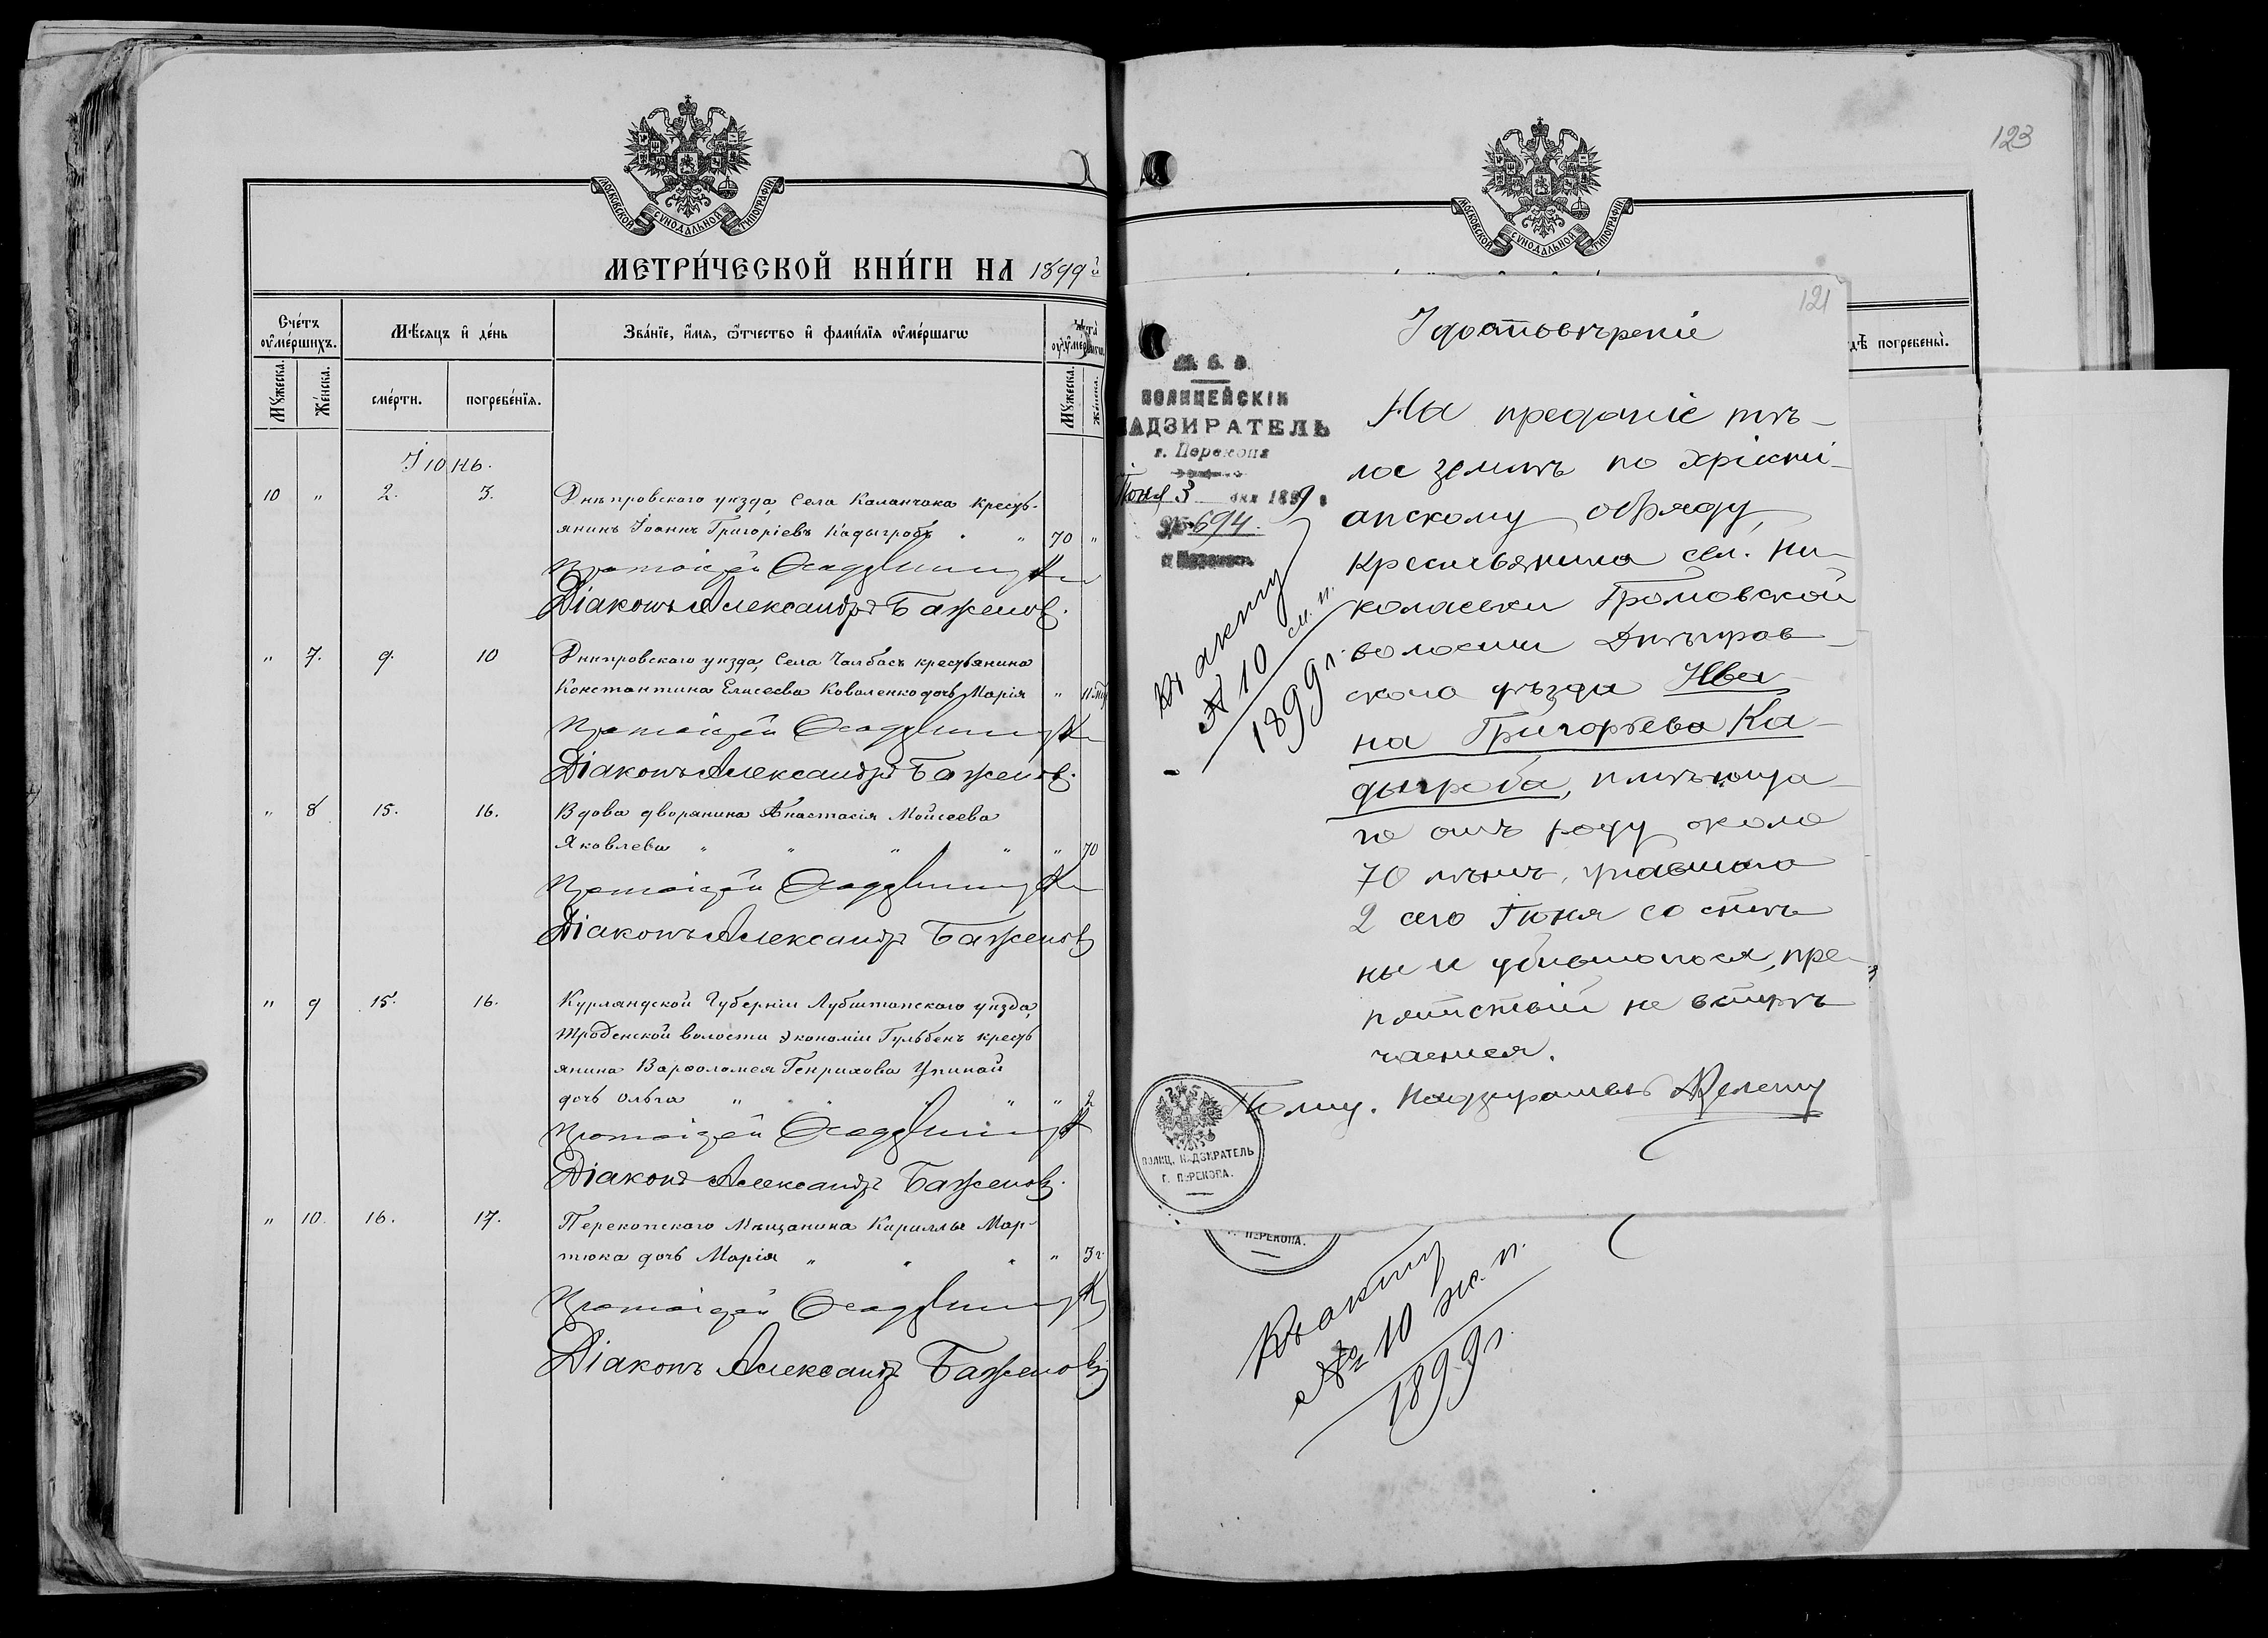 МОСКОВСКОЙ СѴНОДАЛЬНОЙ ТИПОГРАФІИ
МЕТРИ́ЧЕСКОЙ КНИ́ГИ НА 1899й
Сче́тъ ᲂу҆ме́ршихъ.
Мѣ́сяцъ и҆ де́нь
Зва́нїе, и҆́мя, ѻ҆́тчество и҆ фами́лїя ᲂу҆ме́ршагѡ
Му́жеска.
Же́нска.
сме́рти.
погребе́нїя.
Му́жеска.
Же́нска.
Іюнь.
10 " 2. 3. Днѣпровскаго уѣзда, Села Каланчака кресть-
янинъ Іоаннъ Григоріевъ Кадыгробъ " " 70 "
Протоіерей
Діаконъ Александръ Баженовъ.
" 7. 9. 10 Днѣпровскаго уѣзда, Села Чалбасъ крестьянина
Константина Елисеева Коваленко дочь Марія " 11
Протоіерей
Діаконъ Александръ Баженовъ.
" 8 15. 16. Вдова дворянина Анастасія Моисеева
Яковлева " " " " " 70
Протоіерей
Діаконъ Александръ Баженовъ
" 9 15. 16. Курляндской Губерніи уѣзда,
волости Экономіи Гульбенъ кресть
янина Варфоломея Генрихова
дочь Ольга " " " " " 2
Протоіерей
Діаконъ Александръ Баженовъ.
" 10. 16. 17. Перекопскаго Мѣщанина Кирилла Мар-
тюка дочь Марія " " " " 3 г.
Протоіерей
Діаконъ Александръ Баженовъ
123
МОСКОВСКОЙ СѴНОДАЛЬНОЙ ТИПОГРАФІИ
дѣ погребены̀.
121
Удостовѣреніе
М. В. Д.
ПОЛИЦЕЙСКІЙ
НАДЗИРАТЕЛЬ
г. Перекопа
Іюня 3 дня 1899 г
№ 694.
г. Перекопъ
Къ акту
№ 10 м. п.
1899 г.
На преданіе тѣ-
ла землѣ по христі-
анскому обряду,
крестьянина сел. Ни-
колаевки Громовской
волости Днѣпров-
скаго уѣзда Ива-
на Григорьева Ка-
дыгроба, имѣюща-
го отъ роду около
70 лѣтъ, упавшаго
2 сего Іюня со стѣ
ны и убившагося, пре-
пятствій не встрѣ
чается.
Полиц. Надзиратель
ПОЛИЦ. НАДЗИРАТЕЛЬ
Г. ПЕРЕКОПА.
Г. ПЕРЕКОПА.
Къ акту
№ 10 ж. п.
1899 г.